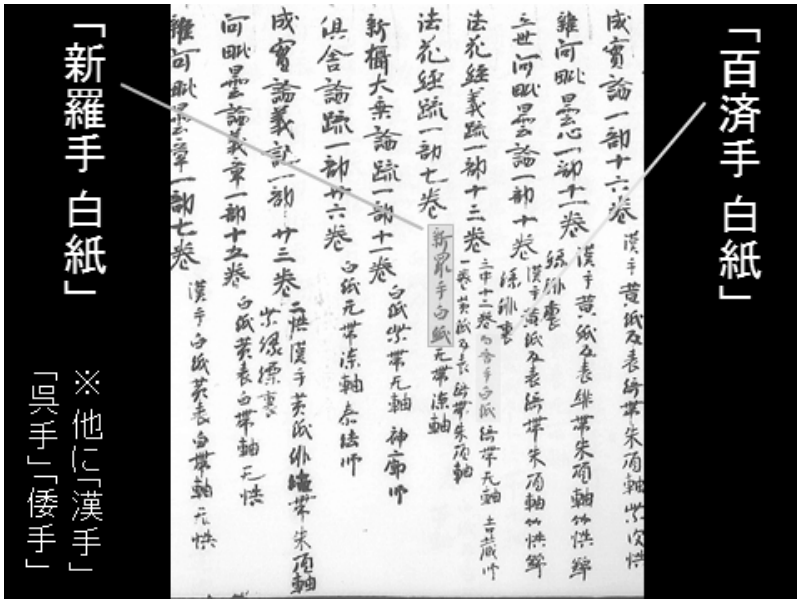 「百済手 白紙」
成實論一部十六卷 漢手黄紙及表綺帶朱頂軸
雜阿毗曇心一部十一卷 漢手黄紙及表緋帶朱頂軸竹帙
緋裏
立世阿毗曇論一部十卷 漢手黄紙及表綺帶朱頂軸竹帙
緋裏
法花経義疏一部十三卷 中十二卷百済手白紙綺帶无軸 吉蔵師
一卷黄紙及表綺帶朱頂軸
法花経疏一部七卷 新羅手白紙无帶漆軸
新攝大乗論疏一部十一卷 白紙紫帶无軸 神廓師
俱舎論疏一部廿六卷 白紙无帶漆軸 泰法師
成實論義記一部 廿三卷 二帙漢手黄紙緋 帶朱頂軸
紫緑縹裏
阿毗曇論義章一部十五卷 白紙黄表白帶軸无帙
雜阿毗曇章一部七卷 漢手白紙黄表白帶軸无帙
「新羅手 白紙」
※他に「漢手」
「呉手」「倭手」